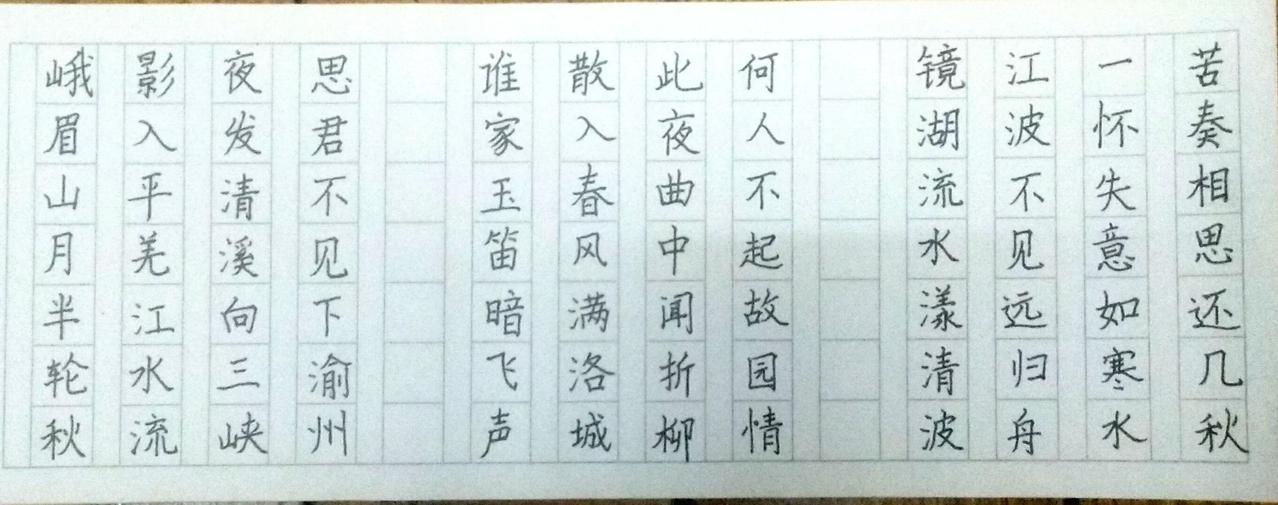 峨眉山月半轮秋
影入平羌江水流
夜发清溪向三峡
思君不见下渝州
谁家玉笛暗飞声
散入春风满洛城
此夜曲中闻折柳
何人不起故园情
镜湖流水漾清波
江波不见远归舟
一怀失意如寒水
苦奏相思还几秋